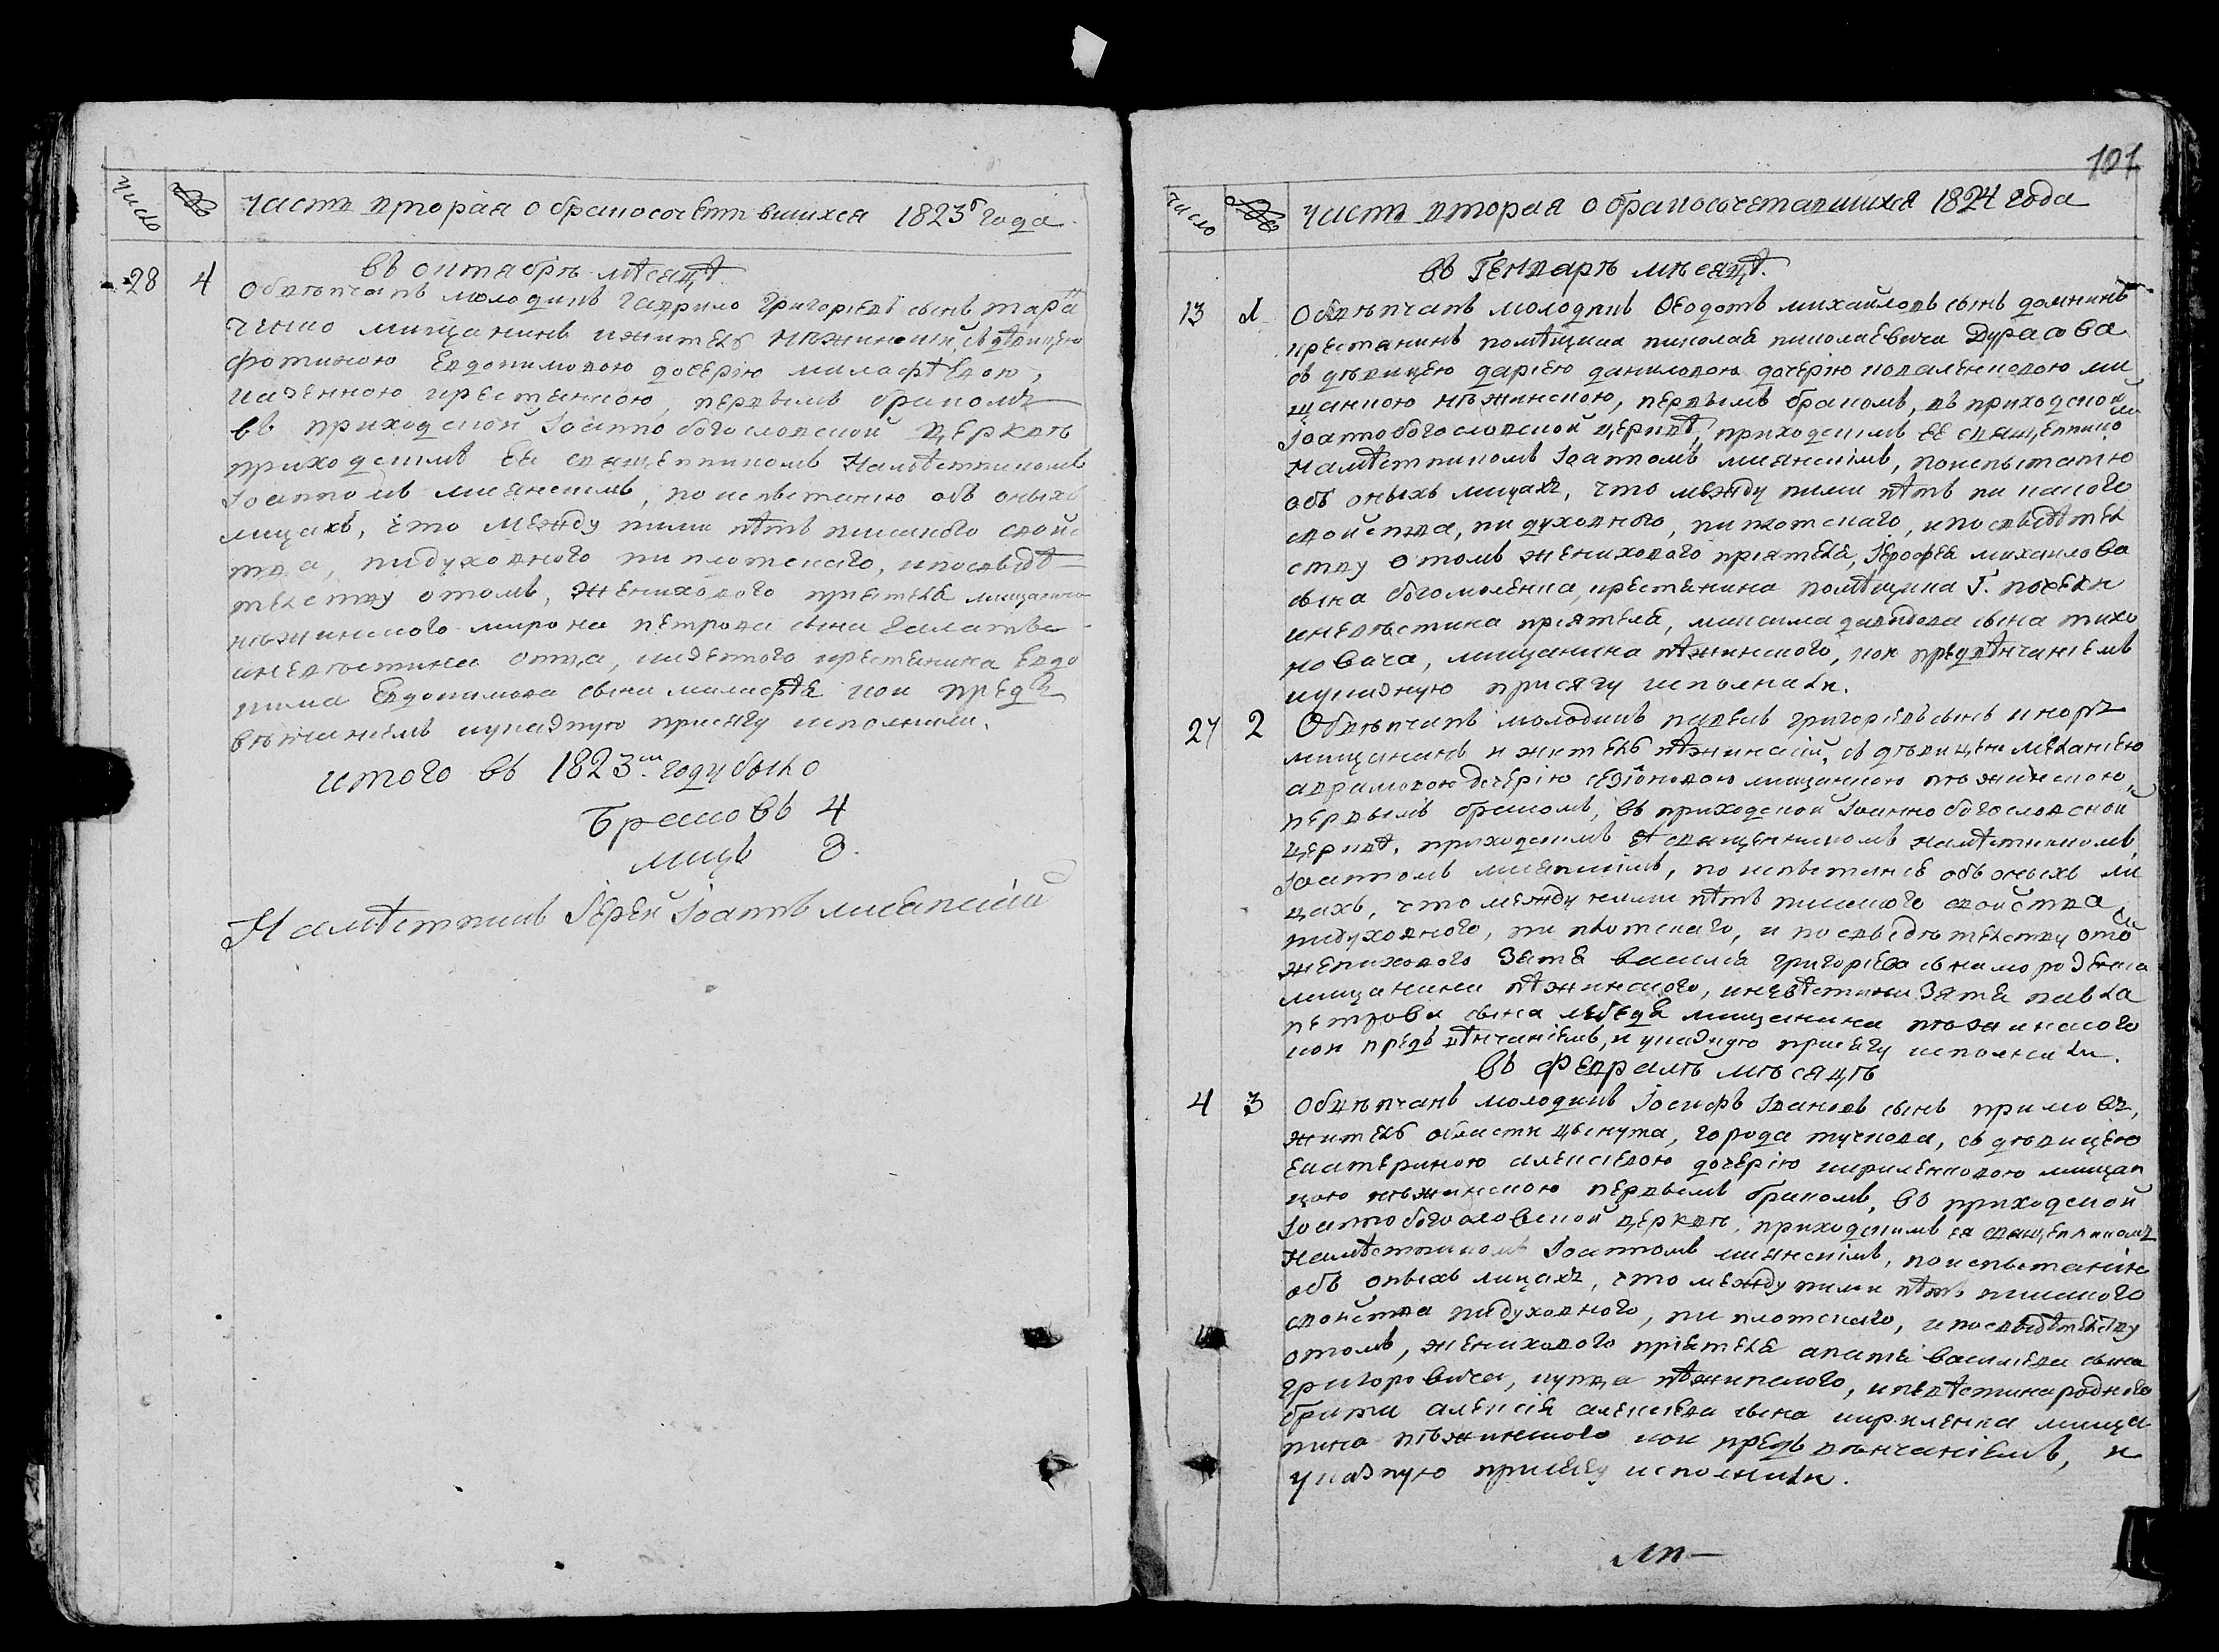 число
часть вторая о бракосочетавшихся 1823 года
въ октябрѣ мѣсяцѣ.
28 4 Обвѣнчанъ молодикъ гаврило Григоріевъ сынъ
мищанинъ и житель нѣжинскій, съ дѣвицею
фотиною Евдокимовою дочерію
казенною крестянкою, первымъ бракомъ
въ приходской Іоаннобогословской церквѣ
приходскимъ ея священникомъ Намѣстникомъ
Іоанномъ, по испытанію объ оныхъ
лицахъ, что между ними нѣтъ никакого свойс
тва, нидуховного ни плотскаго, и посвыдѣ
телству отомъ, женихового пріятеля мищанина
нѣжинского мирона петрова сына
и невѣстина отца, казенного крестянина Евдо
кима Евдокимова сына кои предъ
вѣнчаніемъ иуказную присягу исполнили.
итого въ 1823м году было
браковъ 4
лицъ 8.
Намѣстникъ Іерей Іоаннъ
101
число
часть вторая о бракосочетавшихся 1824 года
въ Генварѣ мѣсяцѣ.
13 1 Обвѣнчанъ молодикъ Ѳеодотъ михайловъ сынъ домнинъ
крестянинъ помѣщика николая николаевича Дурасова
съ дѣвицею даріею даниловою дочерію коваленковою ми
щанкою нѣжинскою, первымъ бракомъ, въ приходской
Іоаннобогословской церквѣ, приходскимъ ея священнико
мъ
Намѣстникомъ Іоанномъ, поиспытанію
объ оныхъ лицахъ, что между ними нѣтъ ни какого
свойства, ни духовного, ни плотскаго, и посвыдѣтел
ству отомъ женихового пріятеля, Іерофея михаилова
сына богомоленка, крестянина помѣщика Г.
и невѣстина пріятеля, максима давыдова сына тихо
новича, мищанина нѣжинского, кои предвѣнчаніемъ
иуказную присягу исполнили.
27 2 Обвѣнчанъ молодикъ павелъ григоріевъ сынъ
мищанинъ и житель нѣжинскій, съ дѣвицею меланіею
аврамовою дочерію мищанкою нѣжинскою,
первымъ бракомъ, въ приходской Іоаннобогословской
церквѣ, приходскимъ ея священникомъ намѣстникомъ
Іоанномъ, по испытаніе объ оныхъ ли
цахъ, что между ними нѣтъ никакого свойства,
нидуховного, ни плотскаго, и посвыдѣтелству отомъ
женихового зятя василія григоріева сына
мищанина нѣжинского, и невѣстина зятя павла
петрова сына лебедя мищанина нѣжинского
кои предъ вѣнчаніемъ, и указную присягу исполнили.
въ Февралѣ мѣсяцѣ
4 3 Обвѣнчанъ молодикъ Іосифъ Івановъ сынъ
житель области города тучкова, съ дѣвицею
Екатериною алексіевою дочерію кириленковою мищан
кою нѣжинскою первымъ бракомъ, въ приходской
Іоаннобогословской церквѣ, приходскимъ ея священникомъ
Намѣстникомъ Іоанномъ, поиспытанію
объ оныхъ лицахъ, что между ними нѣтъ никакого
свойства нидуховного, ни плотскаго, и посвыдѣтелству
отомъ, женихового пріятеля василіева сына
григоровича, купца нѣжинского, и невѣстина родного
брата алексія алексіева сына кириленка мища
нина нѣжинского кои предъ вѣнчаніемъ, и
указную присягу исполнили.